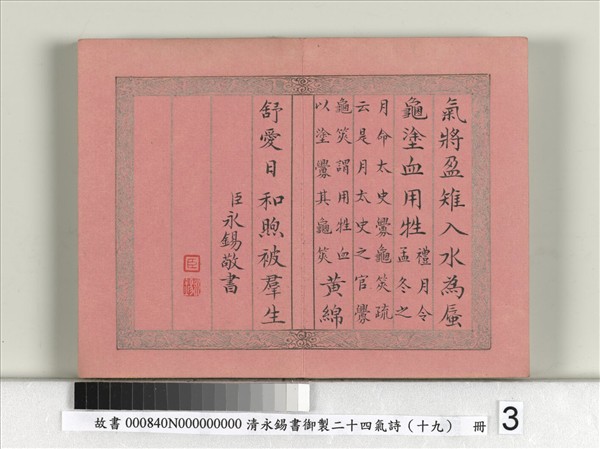 氣將盈雉入水為蜃
龜塗血用牲禮月令孟冬之
月命太史釁龜筴疏
云是月太史之官釁
龜筴謂用牲血
以塗釁其龜筴黃綿
舒愛日和煦被羣生
臣永錫敬書
故書 000840N000000000 清永錫書御製二十四氣詩（十九） 冊
3